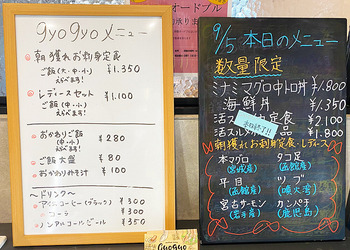 gyogyoメニュー
朝獲れお刺身定食
ご飯(大・中・小) ¥1,350
えらべます!
レディースセット
ご飯(中・小) ¥1,100
えらべます!
おかわりご飯 ¥280
(中・小)
ご飯大盛 ¥80
おかわりみそ汁 ¥100
〜ドリンク〜
アイスコーヒー(ブラック) ¥300
コーラ ¥300
ノンアルコールビール ¥350
gyogyo
オードブル
9/5 本日のメニュー
数量限定
ミナミマグロ中トロ丼 ¥1,800
海鮮丼 ¥1,350
定食 ¥2,100
¥1,800
終了!!
朝獲れお刺身定食・レディース
本マグロ タコ足
(宮城産) (函館産)
平目 ツブ
(函館産) (噴火湾)
宮古サーモン カンパチ
(岩手産) (鹿児島)